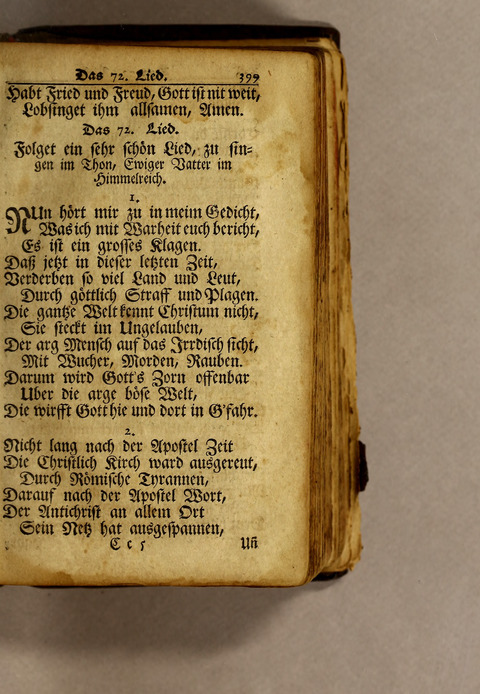 Das 72. Lied. 399
Habt Fried und Freud, Gott ist nit weit,
Lobsinget ihm allsamen, Amen.
Das 72. Lied.
Folget ein sehr schön Lied, zu sin-
gen im Thon, Ewiger Vatter im
Himmelreich.
1.
NUn hört mir zu in meim Gedicht,
Was ich mit Warheit euch bericht,
Es ist ein grosses Klagen.
Daß jetzt in dieser letzten Zeit,
Verderben so viel Land und Leut,
Durch göttlich Straff und Plagen.
Die gantze Welt kennt Christum nicht,
Sie steckt im Ungelauben,
Der arg Mensch auf das Irrdisch sicht,
Mit Wucher, Morden, Rauben.
Darum wird Gott's Zorn offenbar
Uber die arge böse Welt,
Die wirfft Gott hie und dort in G'fahr.
2.
Nicht lang nach der Apostel Zeit
Die Christlich Kirch ward ausgereut,
Durch Römische Tyrannen,
Darauf nach der Apostel Wort,
Der Antichrist an allem Ort
Sein Netz hat ausgespannen,
C c 5 Uñ